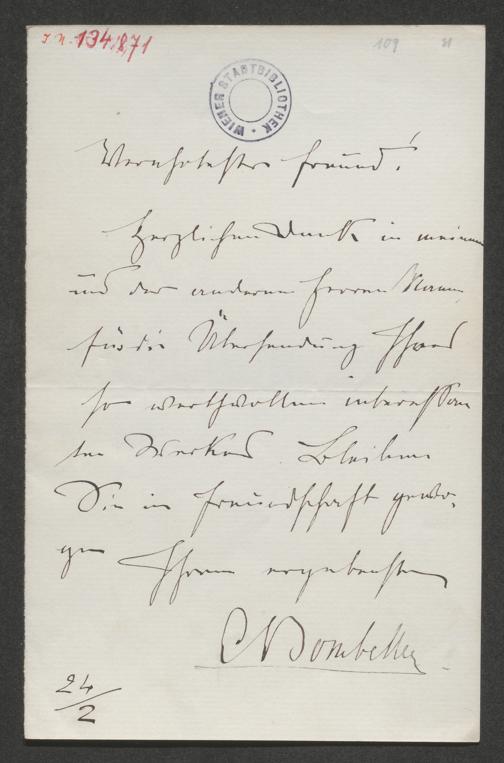 I. N. 134.871
109
WIENER STADTBIBLIOTHEK
Verehrtester Freund!
Herzlichen Dank in meinem
und der anderen Herren Namen
für die Übersendung Ihres
so werthvollen interessan
ten Werkes. Bleiben
Sie in Freundschaft gewo-
gen Ihrem ergebensten
CBombelles
24/2